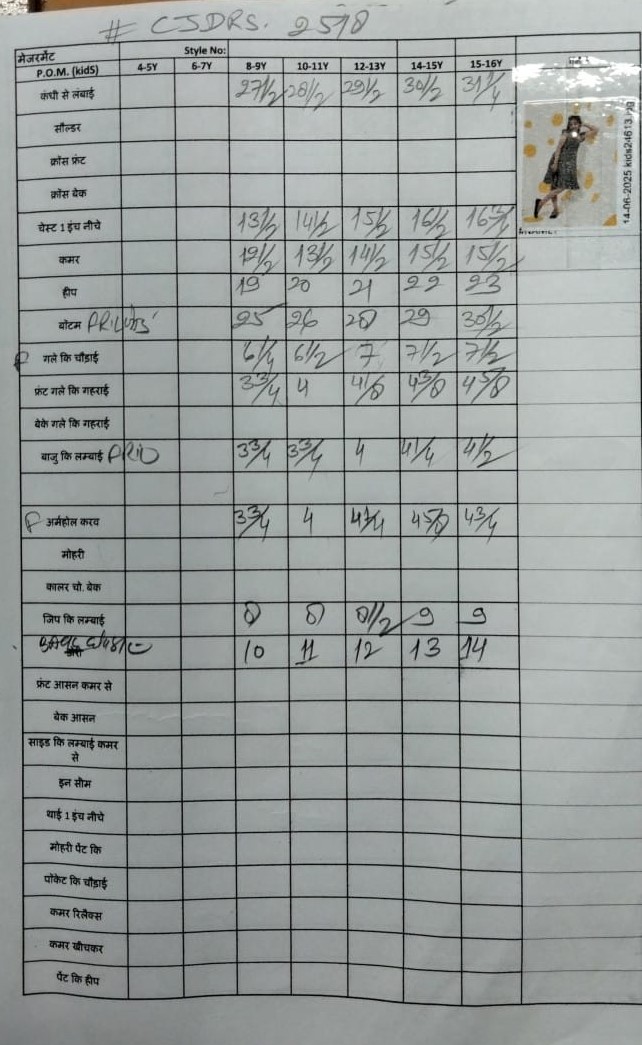 # CJDRS. 2518
मेजरमेंट Style No:
P.O.M. (kids) 4-5Y 6-7Y 8-9Y 10-11Y 12-13Y 14-15Y 15-16Y
कंधी से लंबाई 27 1/2 28 1/2 29 1/2 30 1/2 31 1/4
सौल्डर
क्रॉस फ्रंट
क्रॉस बेक
चेस्ट 1 इंच नीचे 13 1/2 14 1/2 15 1/2 16 1/2 16 3/4
कमर 12 1/2 13 1/2 14 1/2 15 1/2 15 1/2
हीप 19 20 21 22 23
बॉटम 25 26 28 29 30 1/2
गले कि चौड़ाई 6 1/4 6 1/2 7 7 1/2 7 1/2
फ्रंट गले कि गहराई 3 3/4 4 4 1/8 4 3/8 4 5/8
बेके गले कि गहराई
बाजु कि लम्बाई 3 3/4 3 3/4 4 4 1/4 4 1/2
अर्महोल करव 3 3/4 4 4 1/4 4 5/8 4 3/4
मोहरी
कालर चो. बेक
जिप कि लम्बाई 8 8 8 1/2 9 9
10 11 12 13 14
फ्रंट आसन कमर से
बेक आसन
साइड कि लम्बाई कमर
से
इन सीम
थाई 1 इंच नीचे
मोहरी पेंट कि
पोकेट कि चौड़ाई
कमर रिलैक्स
कमर खीचकर
पेंट कि हीप
14-06-2025 kids24613